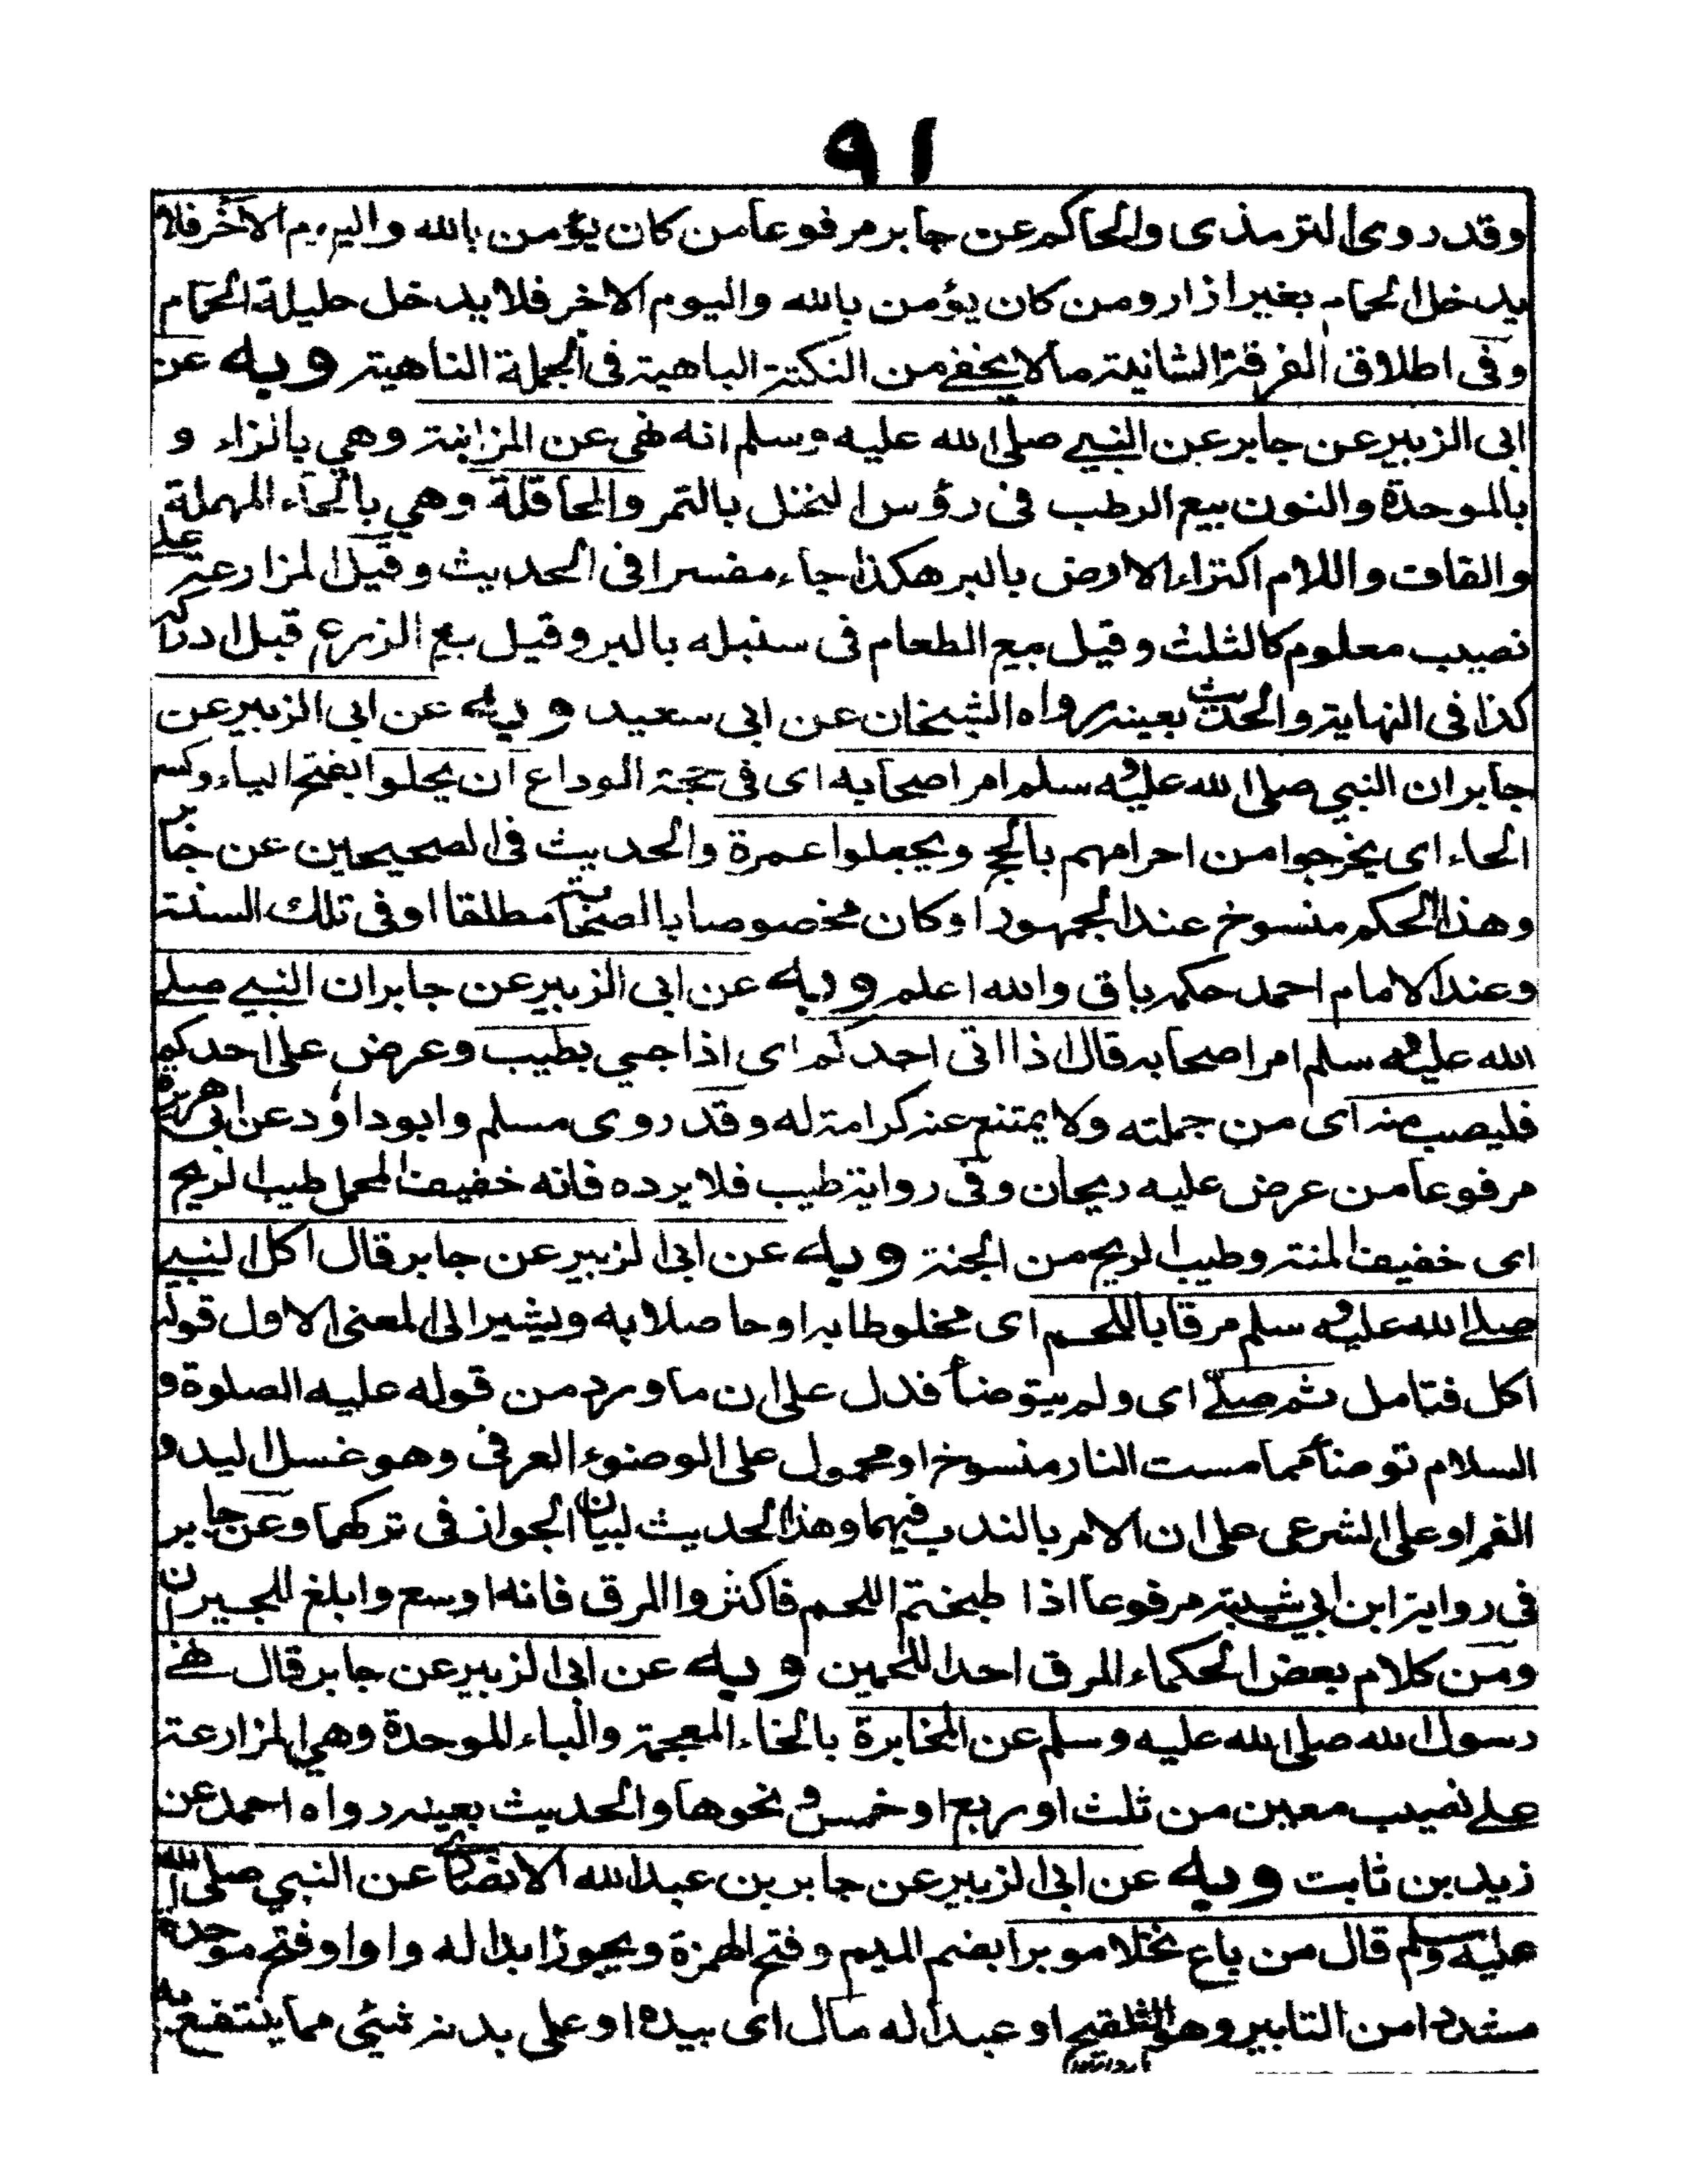 ٩١
وقد روى الترمذى والحاكم عن جابر مرفوعا من كان يؤمن بالله واليوم الاخر فلا
يدخل الحمام بغير ازار ومن كان يؤمن بالله واليوم الاخر فلا يدخل حليلة الحمام
وفى اطلاق الفرقة الثانية ما لا يخفى من النكتة الباهية فى الجملة الناهية وبه عن
ابى الزبير عن جابر عن النبى صلى الله عليه وسلم انه نهى عن المزابنة وهي بالزاء و
بالموحدة والنون بيع الرطب فى رؤس النخل بالتمر والمحاقلة وهي بالحاء المهملة
والقاف واللام اكتراء الارض بالبر هكذا جاء مفسرا فى الحديث وقيل المزارعة على
نصيب معلوم كالثلث وقيل بيع الطعام فى سنبله بالبر وقيل بيع الزرع قبل ادراكه
كذا فى النهاية والحديث بعينه رواه الشيخان عن ابى سعيد وبه عن ابى الزبير عن
جابر ان النبي صلى الله عليه وسلم امر اصحابه اى فى حجة الوداع ان يحلوا بفتح الياء وكسر
الحاء اى يخرجوا من احرامهم بالحج ويجعلوا عمرة والحديث فى الصحيحين عن جابر
وهذا الحكم منسوخ عند الجمهور او كان مخصوصا بالصحابة مطلقا او فى تلك السنة
وعند الامام احمد حكمه باق والله اعلم وبه عن ابى الزبير عن جابر ان النبى صلى
الله عليه وسلم امر اصحابه قال اذا اتى احدكم اى اذا جيي بطيب وعرض على احدكم
فليصب منه اى من جملته ولا يمتنع عنه كرامة له وقد روى مسلم وابو داؤد عن ابى هريرة
مرفوعا من عرض عليه ريحان وفى رواية طيب فلا يرده فانه خفيف المحمل طيب الريح
اى خفيف المنة وطيب الريح من الجنة وبه عن ابى الزبير عن جابر قال اكل النبى
صلى الله عليه وسلم مرقا باللحم اى مخلوطا به او حاصلا به ويشير الى المعنى الاول قوله
اكل فتامل ثم صلى اى ولم يتوضأ فدل على ان ما ورد من قوله عليه الصلوة و
السلام توضأ مما مست النار منسوخ او محمول على الوضوء العرفى وهو غسل اليد و
الفم او على الشرعى على ان الامر بالندب فيهما وهذا الحديث لبيان الجواز فى تركهما وعن جابر
فى رواية ابن ابي شيبة مرفوعا اذا طبختم اللحم فاكثروا المرق فانه اوسع وابلغ للجيران
ومن كلام بعض الحكماء المرق احد اللحمين وبه عن ابى الزبير عن جابر قال نهى
رسول الله صلى الله عليه وسلم عن المخابرة بالخاء المعجمة والباء الموحدة وهي المزارعة
على نصيب معين من ثلث او ربع او خمس ونحوها والحديث بعينه رواه احمد عن
زيد بن ثابت وبه عن ابى الزبير عن جابر بن عبد الله الانصارى عن النبي صلى الله
عليه وسلم قال من باع نخلا موبرا بضم الميم وفتح الهمزة ويجوز ابداله واوا وفتح موحدة
مشددا من التابير وهو التلقيح او عبدا له مال اى بيده او على بدنه شئي مما ينتفع به